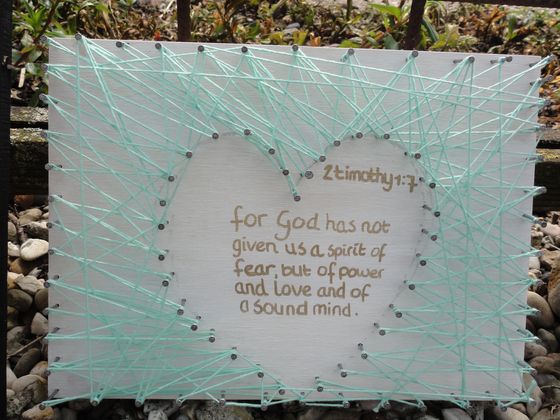 2timothy 1:7
for God has not
given us a spirit of
fear, but of power
and love and of
a sound mind.